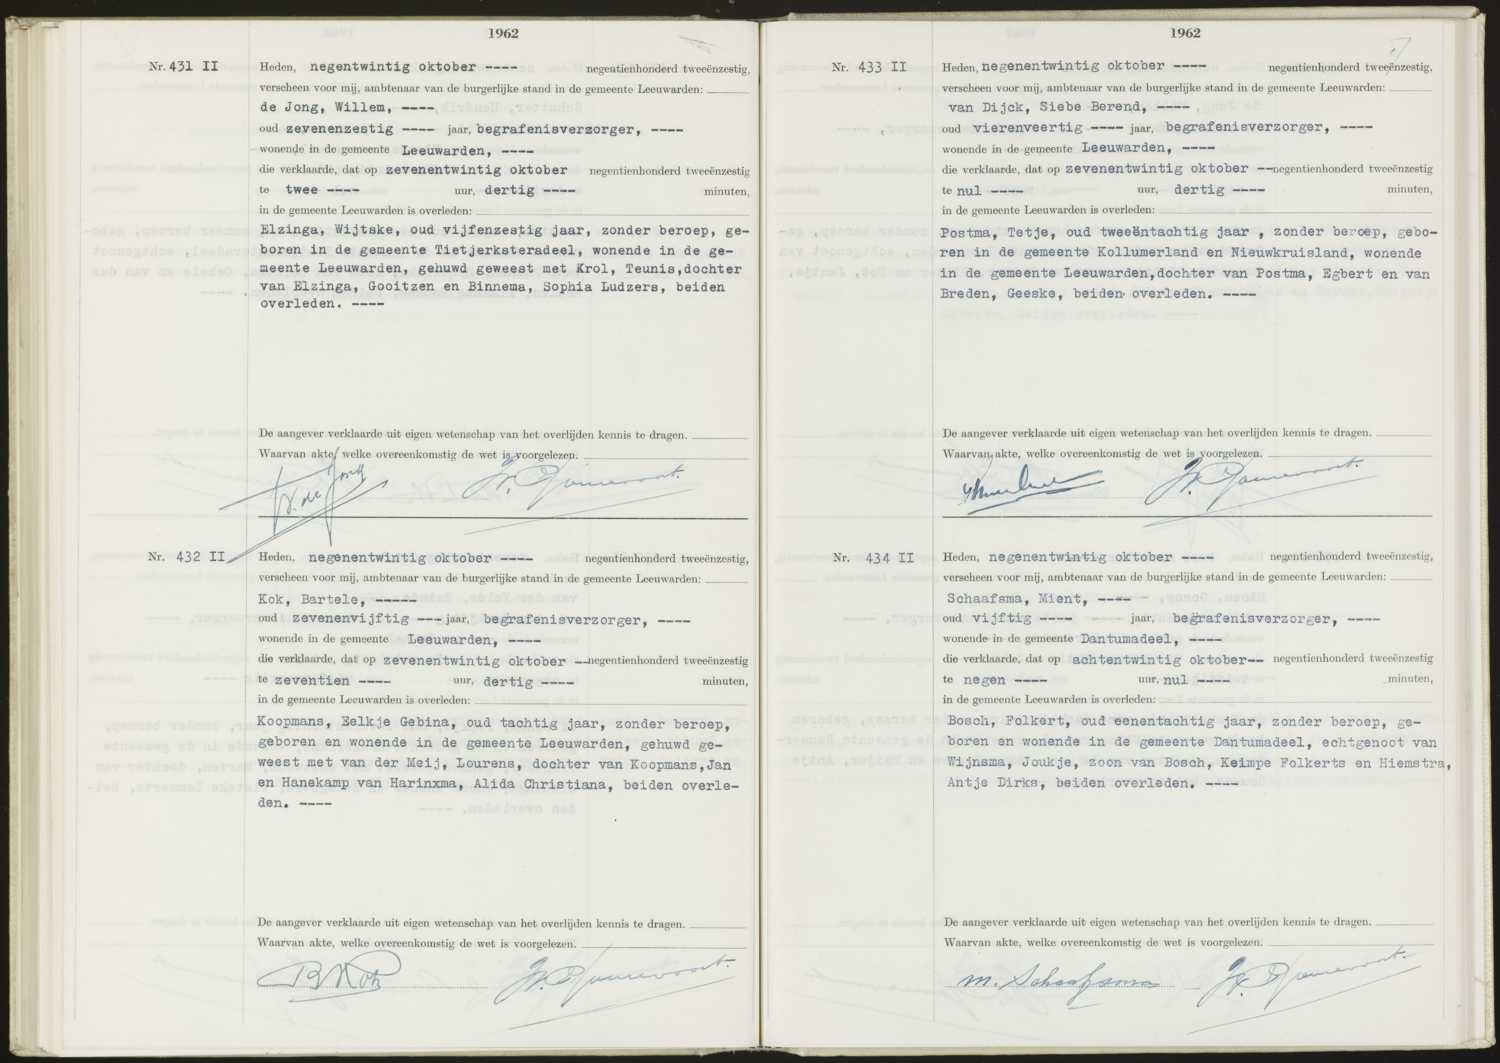 1962
Nr. 431 II
Heden, negentwintig oktober ---- negentienhonderd tweeënzestig,
verscheen voor mij, ambtenaar van de burgerlijke stand in de gemeente Leeuwarden:
de Jong, Willem, ----
oud zevenenzestig ---- jaar, begrafenisverzorger, ----
wonende in de gemeente Leeuwarden, ----
die verklaarde, dat op zevenentwintig oktober negentienhonderd tweeënzestig
te twee ---- uur, dertig ---- minuten,
in de gemeente Leeuwarden is overleden:
Elzinga, Wijtske, oud vijfenzestig jaar, zonder beroep, ge-
boren in de gemeente Tietjerksteradeel, wonende in de ge-
meente Leeuwarden, gehuwd geweest met Krol, Teunis,dochter
van Elzinga, Gooitzen en Binnema, Sophia Ludzers, beiden
overleden. ----
De aangever verklaarde uit eigen wetenschap van het overlijden kennis te dragen.
Waarvan akte, welke overeenkomstig de wet is voorgelezen.
W. de Jong
Nr. 432 II
Heden, negenentwintig oktober ---- negentienhonderd tweeënzestig,
verscheen voor mij, ambtenaar van de burgerlijke stand in de gemeente Leeuwarden:
Kok, Bartele, -----
oud zevenenvijftig --- jaar, begrafenisverzorger, ----
wonende in de gemeente Leeuwarden, ----
die verklaarde, dat op zevenentwintig oktober --negentienhonderd tweeënzestig
te zeventien ---- uur, dertig ---- minuten,
in de gemeente Leeuwarden is overleden:
Koopmans, Eelkje Gebina, oud tachtig jaar, zonder beroep,
geboren en wonende in de gemeente Leeuwarden, gehuwd ge-
weest met van der Meij, Lourens, dochter van Koopmans,Jan
en Hanekamp van Harinxma, Alida Christiana, beiden overle-
den. ----
De aangever verklaarde uit eigen wetenschap van het overlijden kennis te dragen.
Waarvan akte, welke overeenkomstig de wet is voorgelezen.
B Kok
1962
Nr. 433 II
Heden, negenentwintig oktober ---- negentienhonderd tweeënzestig,
verscheen voor mij, ambtenaar van de burgerlijke stand in de gemeente Leeuwarden:
van Dijck, Siebe Berend, ----
oud vierenveertig ---- jaar, begrafenisverzorger, ----
wonende in de gemeente Leeuwarden, ----
die verklaarde, dat op zevenentwintig oktober --negentienhonderd tweeënzestig
te nul ---- uur, dertig ---- minuten,
in de gemeente Leeuwarden is overleden:
Postma, Tetje, oud tweeëntachtig jaar , zonder beroep, gebo-
ren in de gemeente Kollumerland en Nieuwkruisland, wonende
in de gemeente Leeuwarden,dochter van Postma, Egbert en van
Breden, Geeske, beiden overleden. ----
De aangever verklaarde uit eigen wetenschap van het overlijden kennis te dragen.
Waarvan akte, welke overeenkomstig de wet is voorgelezen.
Nr. 434 II
Heden, negenentwintig oktober ---- negentienhonderd tweeënzestig,
verscheen voor mij, ambtenaar van de burgerlijke stand in de gemeente Leeuwarden:
Schaafsma, Mient, ----
oud vijftig ---- jaar, begrafenisverzorger, ----
wonende in de gemeente Dantumadeel, ----
die verklaarde, dat op achtentwintig oktober-- negentienhonderd tweeënzestig
te negen ---- uur, nul ---- minuten,
in de gemeente Leeuwarden is overleden:
Bosch, Folkert, oud eenentachtig jaar, zonder beroep, ge-
boren en wonende in de gemeente Dantumadeel, echtgenoot van
Wijnsma, Joukje, zoon van Bosch, Keimpe Folkerts en Hiemstra,
Antje Dirks, beiden overleden. ----
De aangever verklaarde uit eigen wetenschap van het overlijden kennis te dragen.
Waarvan akte, welke overeenkomstig de wet is voorgelezen.
M. Schaafsma